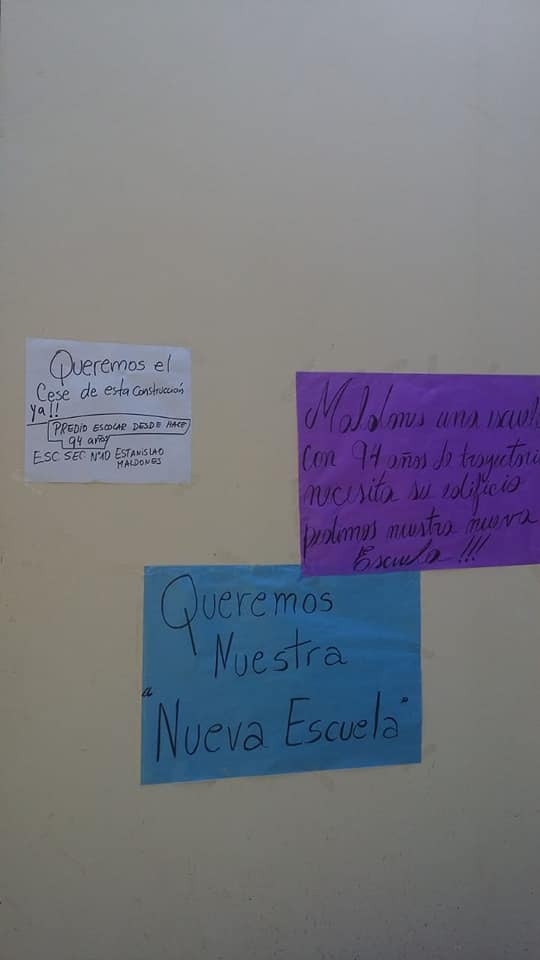 Queremos el
Cese de esta construcción
ya!!
PREDIO ESCOLAR DESDE HACE
94 años
ESC SEC Nº10 ESTANISLAO
MALDONES
Maldones una escuel
con 94 años de trayectoria
necesita su edificio
pedimos nuestra nueva
Escuela !!!
Queremos
Nuestra
"Nueva Escuela"